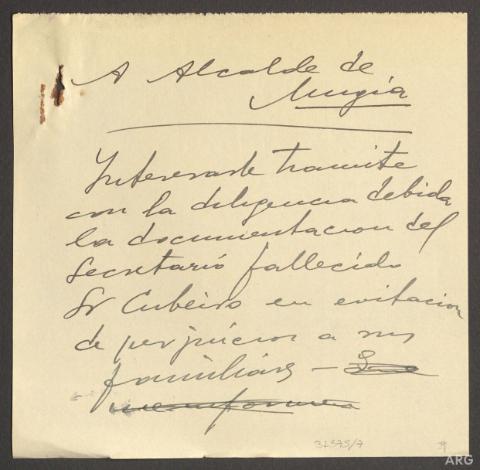 A Alcalde de
Mugia
Interesarle tramite
con la diligencia debida
la documentacion del
Secretario fallecido
Sr Cubeiro en evitacion
de perjuicios a sus
familiares –
37575/7
ARG